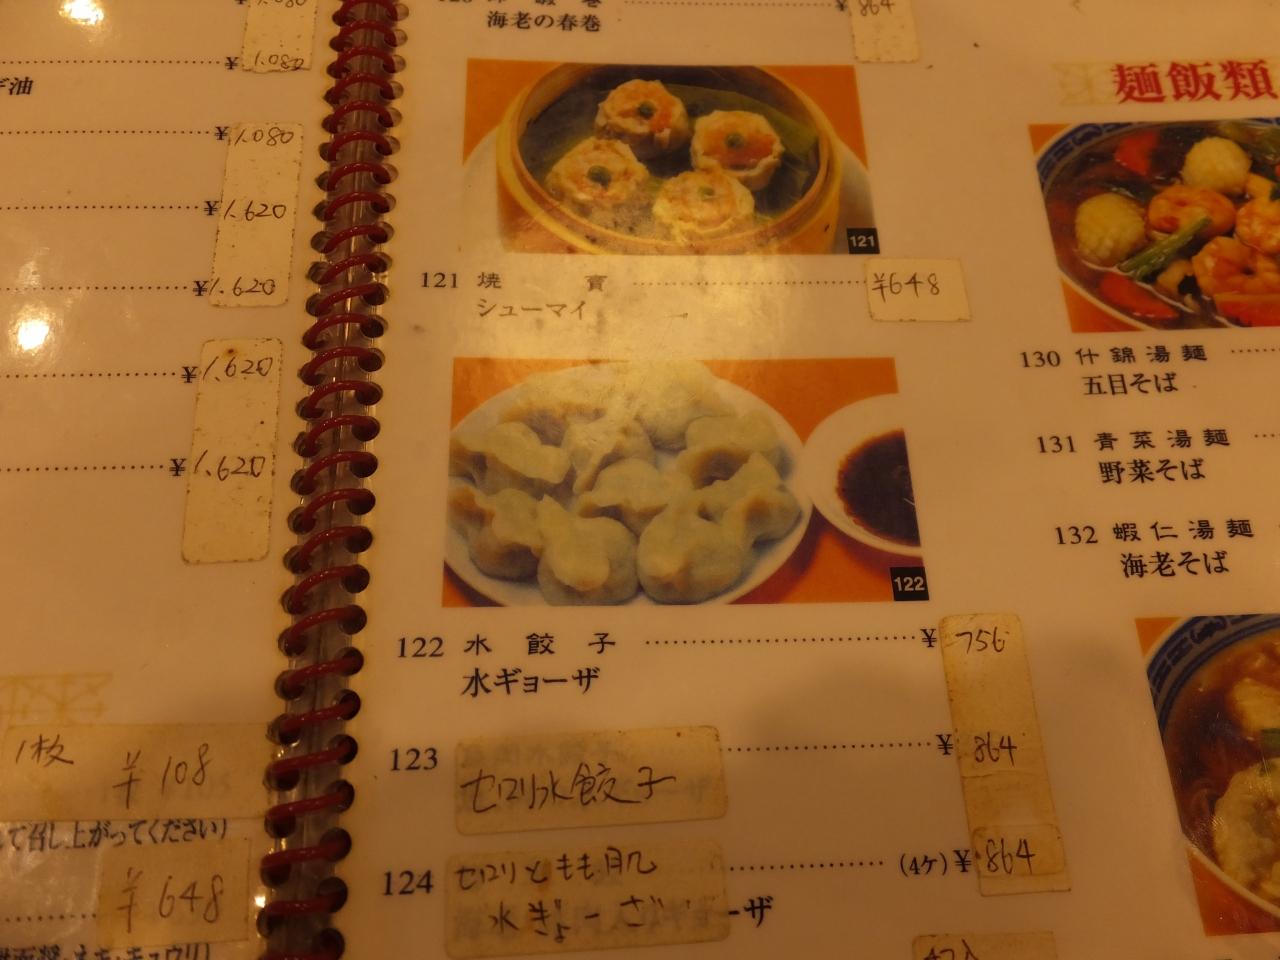 ¥1.080
¥1.080
デ油
¥1.080
¥1.620
¥1.620
¥1.620
¥1.620
1枚 ¥108
て召し上がってください)
¥648
海老の春巻
¥864
121
121 焼 賣 ¥648
シューマイ
122
122 水 餃 子 ¥756
水ギョーザ
123 セロリ水餃子 ¥864
124 セロリともも肌 (4ケ)¥864
水ぎょーざ ーザ
麺飯類
130 什錦湯麺
五目そば
131 青菜湯麺
野菜そば
132 蝦仁湯麺
海老そば